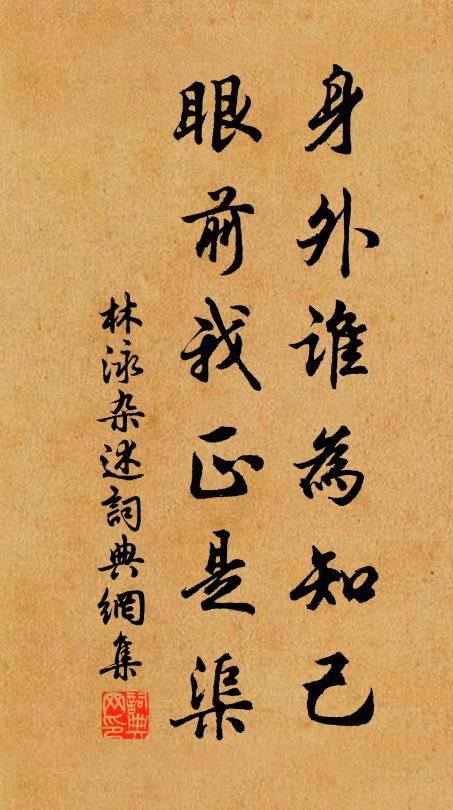 身外谁為知己
眼前我正是渠
林泳杂述詞典網集
詞典网印